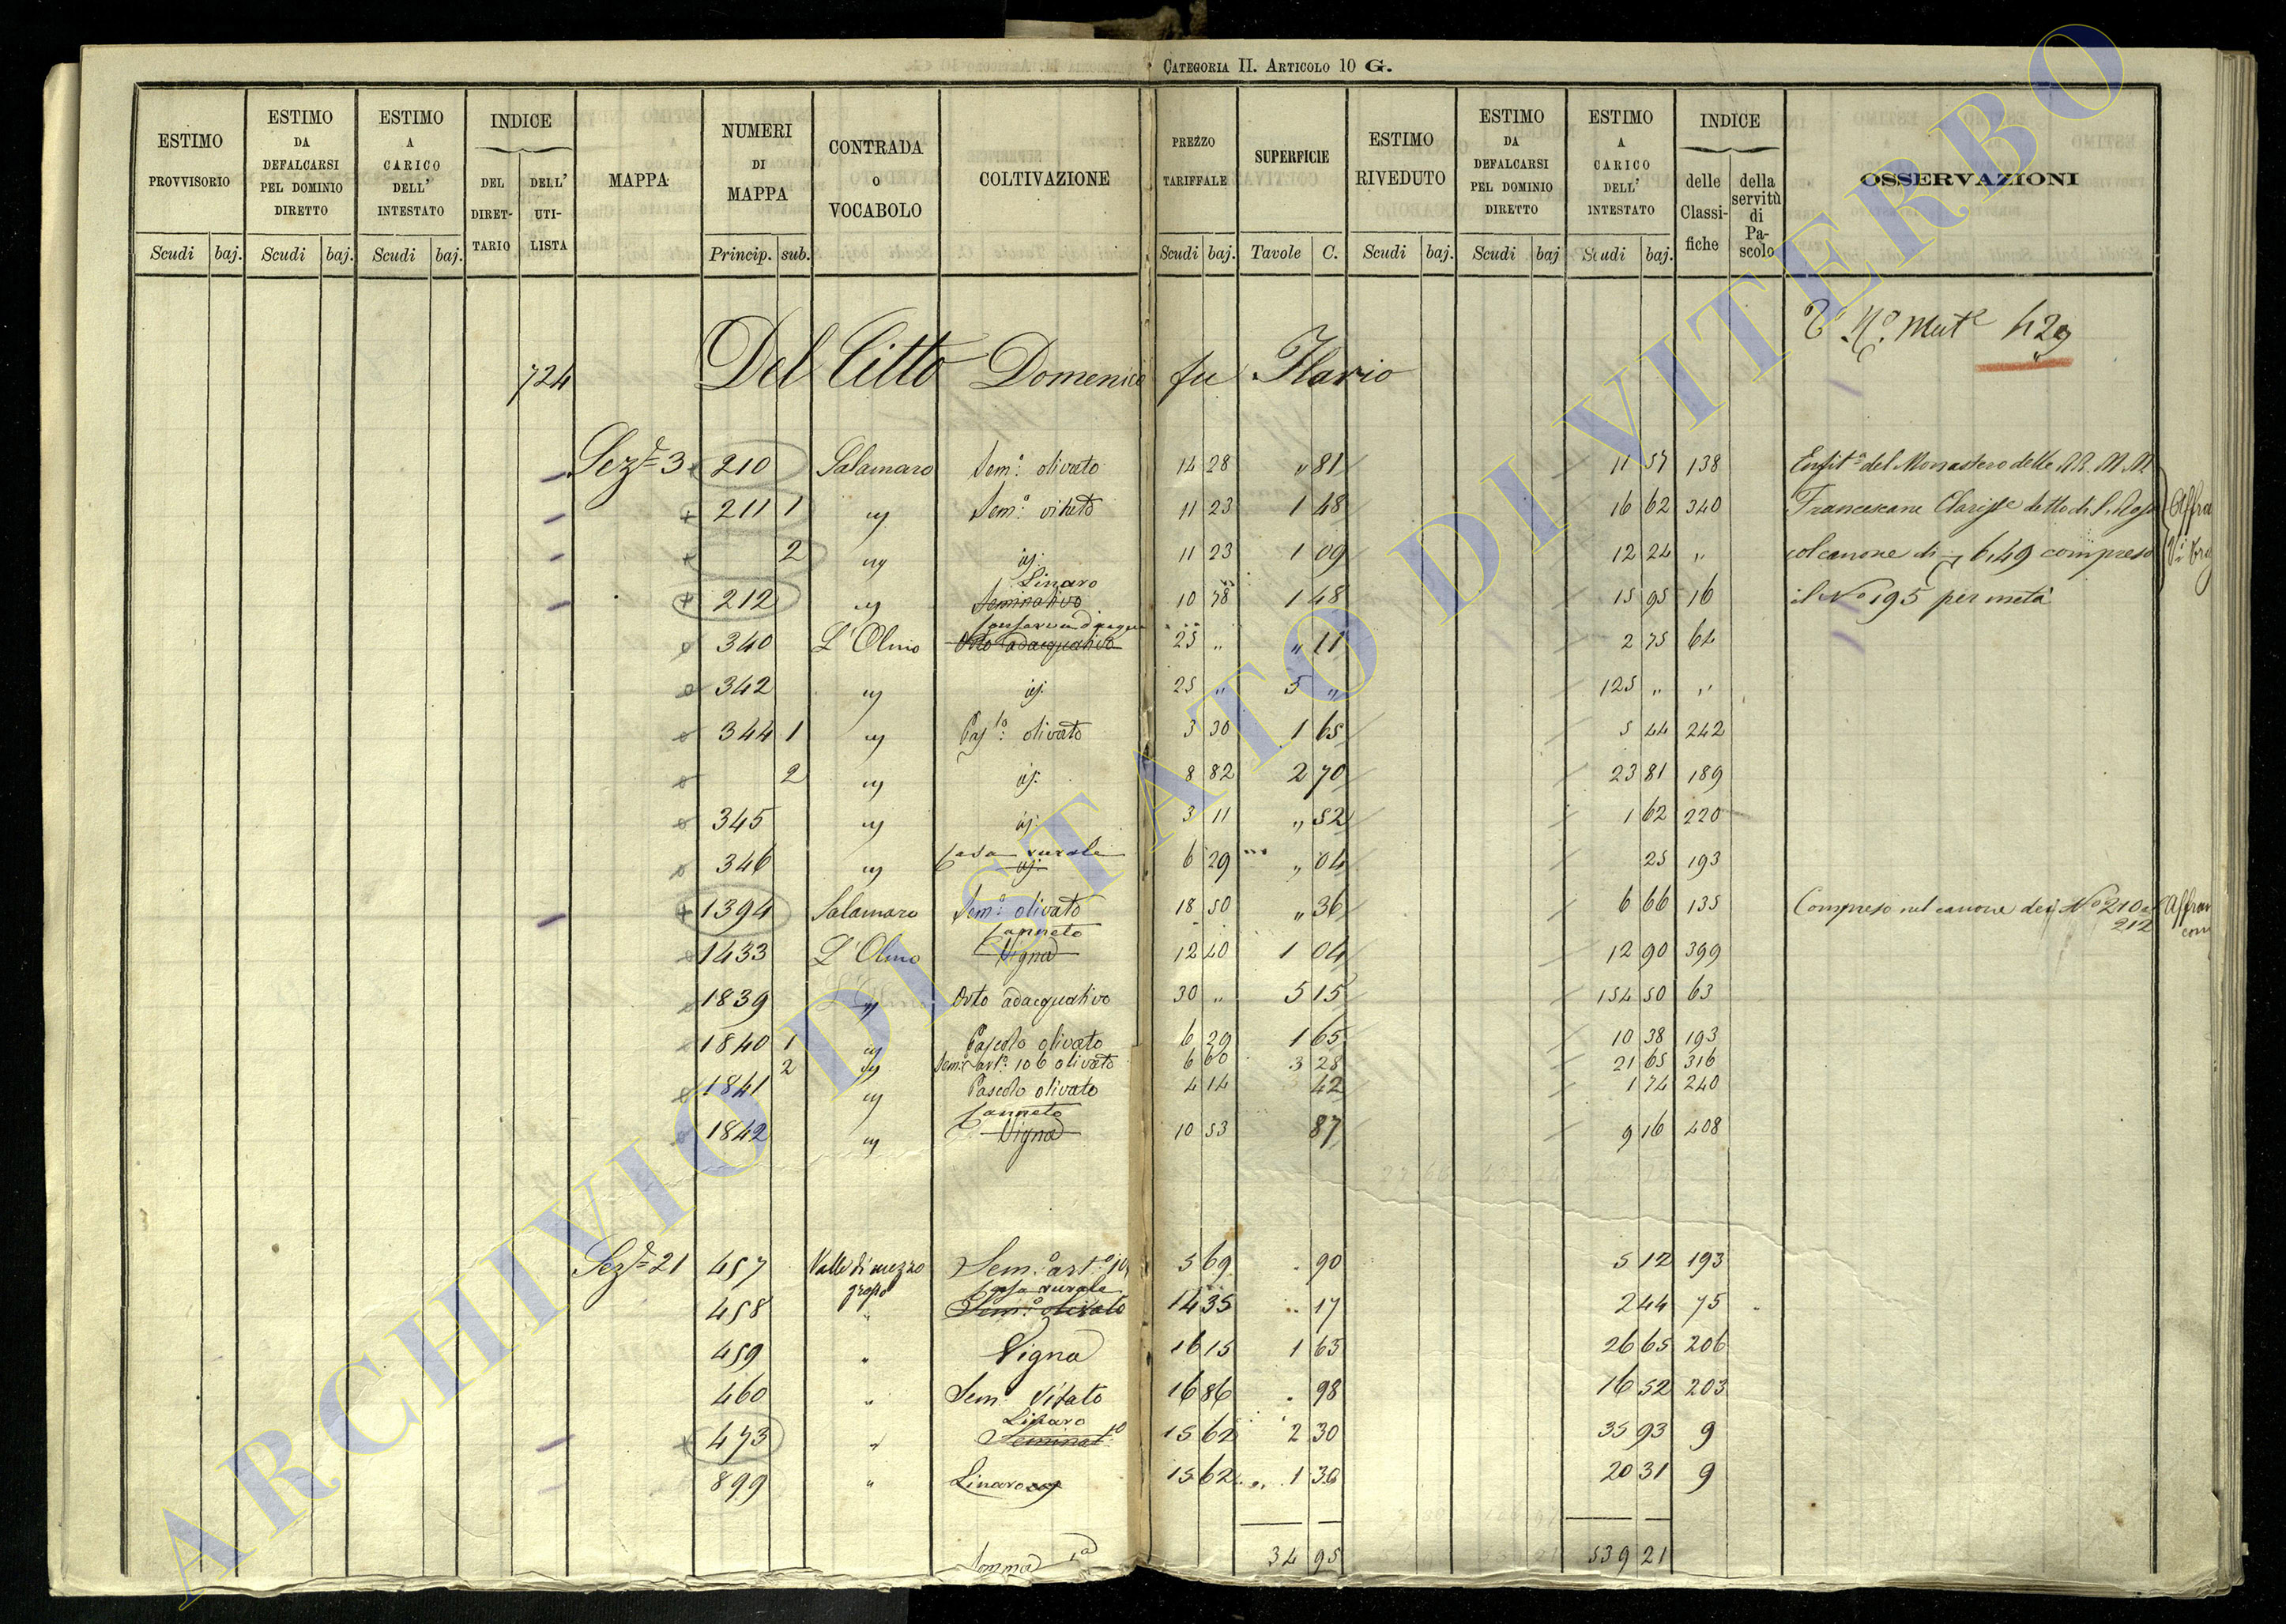 CATEGORIA II. ARTICOLO 10 G.
ESTIMO PROVVISORIO Scudi baj.
ESTIMO DA DEFALCARSI PEL DOMINIO DIRETTO Scudi baj.
ESTIMO A CARICO DELL' INTESTATO Scudi baj.
INDICE DEL DIRETTARIO DELL' UTILISTA
MAPPA
NUMERI DI MAPPA Princip. sub.
CONTRADA O VOCABOLO
COLTIVAZIONE
PREZZO TARIFFALE Scudi baj.
SUPERFICIE Tavole C.
ESTIMO RIVEDUTO Scudi baj.
ESTIMO DA DEFALCARSI PEL DOMINIO DIRETTO Scudi baj
ESTIMO A CARICO DELL' INTESTATO Scudi baj.
INDICE delle Classifiche della servitù di Pascolo
OSSERVAZIONI
N.o Mut.e 429
724 Del Citto Domenico fu Ilario
Sez.e 3 210 Salamaro Sem.o olivato 14 28 " 81 11 57 138 Enfit.a del Monastero delle RR. MM.
211 1 " Sem.o vitato 11 23 1 48 16 62 340 Francescane Clarisse detto di S. Rosa
2 " id. 11 23 1 09 12 24 " col canone di 6,49 compreso
Linaro
212 " Seminativo 10 78 1 48 15 95 16 il No 195 per metà
340 L'Olmo Orto adacquativo 25 " " 11 2 75 64
342 " id. 25 " 5 " 125 " "
344 1 " Pas.lo olivato 3 30 1 65 5 44 242
2 " id. 8 82 2 70 23 81 189
345 " id. 3 11 " 52 1 62 220
Casa rurale
346 " id. 6 29 " 04 25 193
1394 Salamaro Sem.o olivato 18 50 " 36 6 66 135 Compreso nel canone dei No 210 a 212
Canneto
1433 L'Olmo Vigna 12 40 1 04 12 90 399
1839 " Orto adacquativo 30 " 5 15 154 50 63
1840 1 " Pascolo olivato 6 29 1 65 10 38 193
2 " Sem.o art.o 106 olivato 6 60 3 28 21 65 316
1841 " Pascolo olivato 4 14 42 1 74 240
Canneto
1842 " Vigna 10 53 87 9 16 408
Sez.e 21 457 Valle di mezzo grosso Sem.o art.o 5 69 . 90 5 12 193
Casa rurale
458 " Sem.o olivato 14 35 .. 17 2 44 75
459 " Vigna 16 15 1 65 26 65 206
460 " Sem.o Vitato 16 86 . 98 16 52 203
Linaro
473 " Seminat.o 15 62 2 30 35 93 9
899 " Linaro 15 62 1 30 20 31 9
Somma 34 95 539 21
ARCHIVIO DI STATO DI VITERBO